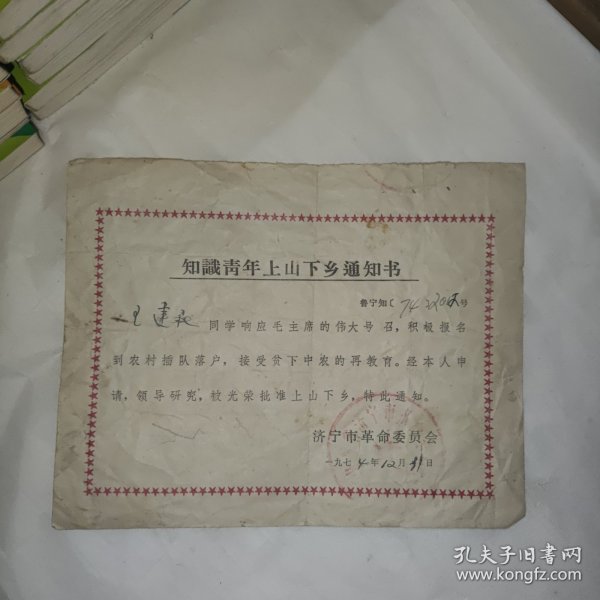 知識青年上山下乡通知书
鲁宁知(74 号
王建 同学响应毛主席的伟大号召，积极报名
到农村插队落户，接受贫下中农的再教育。经本人申
请，领导研究，被光荣批准上山下乡，特此通知。
济宁市革命委员会
一九七4年12月31日
孔夫子旧书网
www.kongfz.com